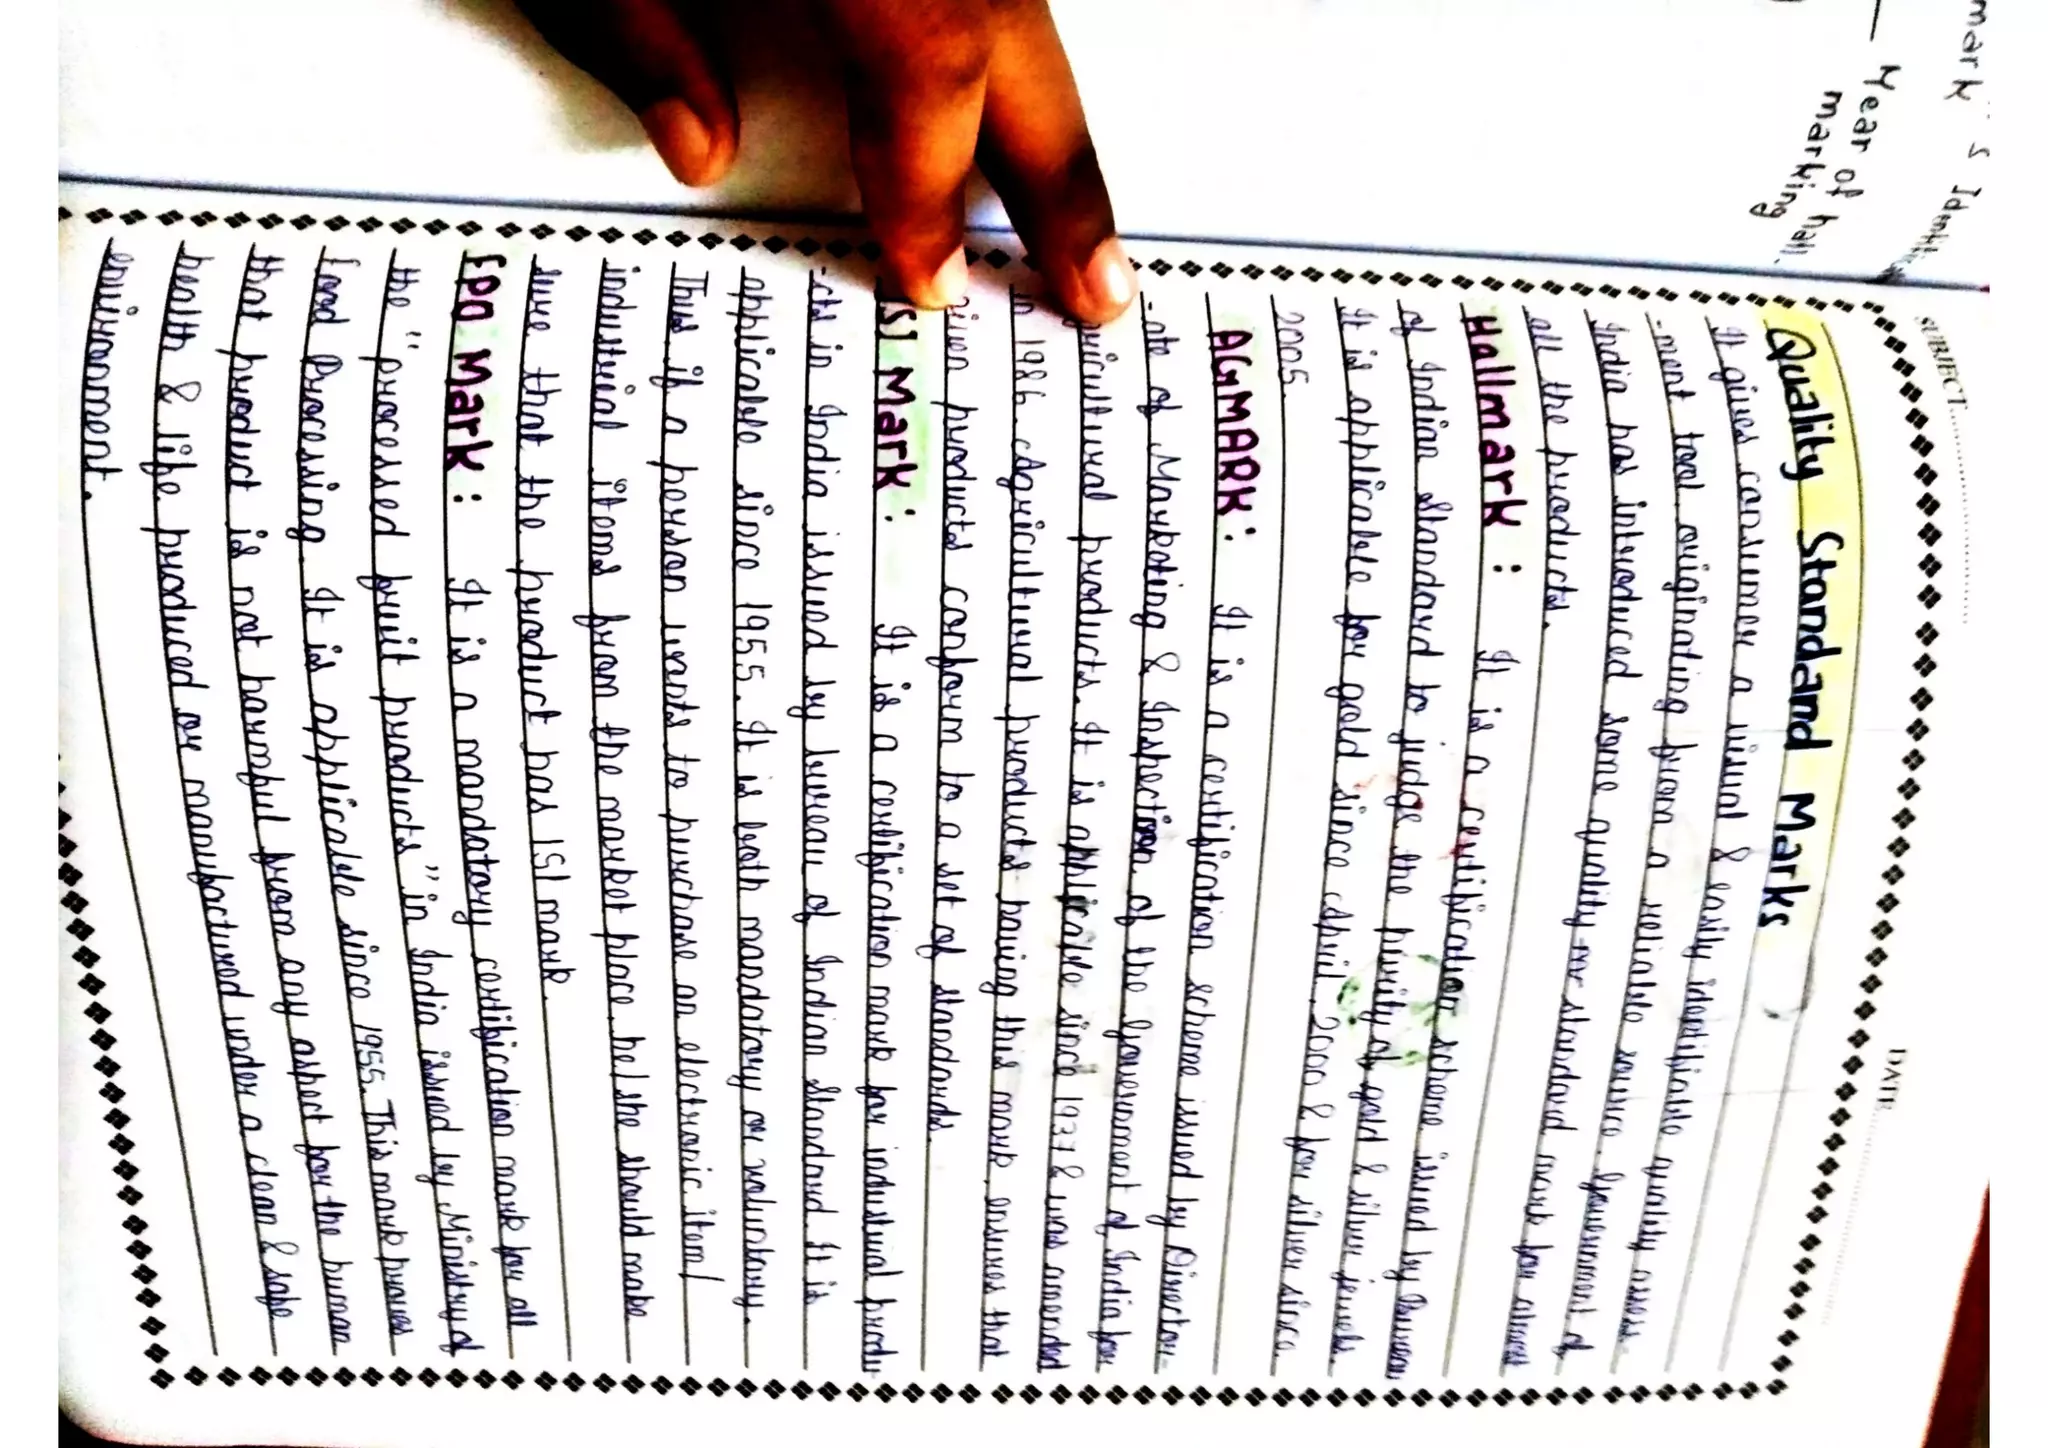 mark 's Identi
Year of hall
marking
SUBJECT
DATE
Quality Standand Marks
It gives consumer a visual & easily identifiable quality assess-
-ment tool originating from a reliable source. Government of
India has introduced some quality or standard mark for almost
all the products.
Hallmark : It is a certification scheme issued by Bureau
of Indian Standard to judge the purity of gold & silver jewels.
It is applicable for gold since April, 2000 & for silver since
2005.
AGMARK : It is a certification scheme issued by Director-
-ate of Marketing & Inspection of the Government of India for
agricultural products. It is applicable since 1937 & was amended
in 1986. Agricultural products having this mark, ensures that
products conform to a set of standards.
ISI Mark : It is a certification mark for industrial produ-
-cts in India issued by bureau of Indian Standard. It is
applicable since 1955. It is both mandatory or voluntary.
This if a person wants to purchase an electronic item/
industrial items from the market place, he/she should make
sure that the product has ISI mark.
FPO Mark : It is a mandatory certification mark for all
the "processed fruit products" in India issued by Ministry of
Food Processing. It is applicable since 1955. This mark proves
that product is not harmful from any aspect for the human
health & life produced or manufactured under a clean & safe
environment.